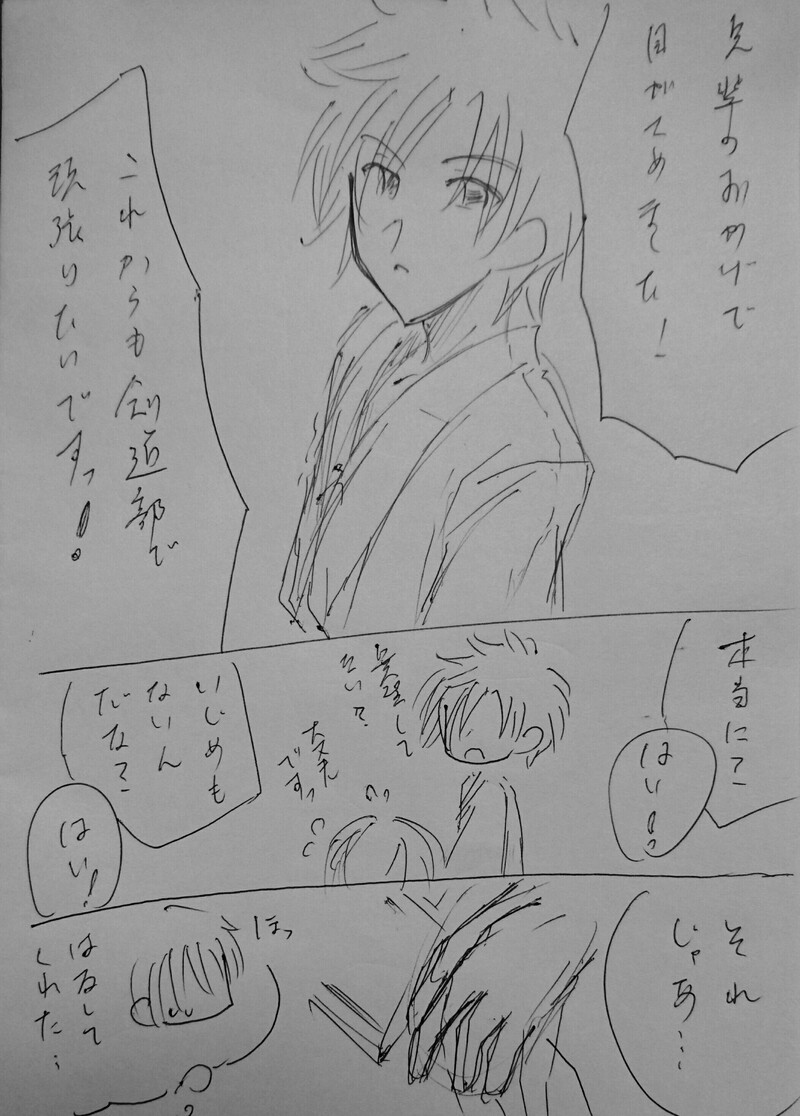 先輩のおかげで
目がさめました!
これからも剣道部で
頑張りたいですっ!
本当に?
はい!!
無理して
ない??
大丈夫
ですっ
いじめも
ないん
だな?
はい!
それ
じゃあ…
ほっ
はなして
くれた…